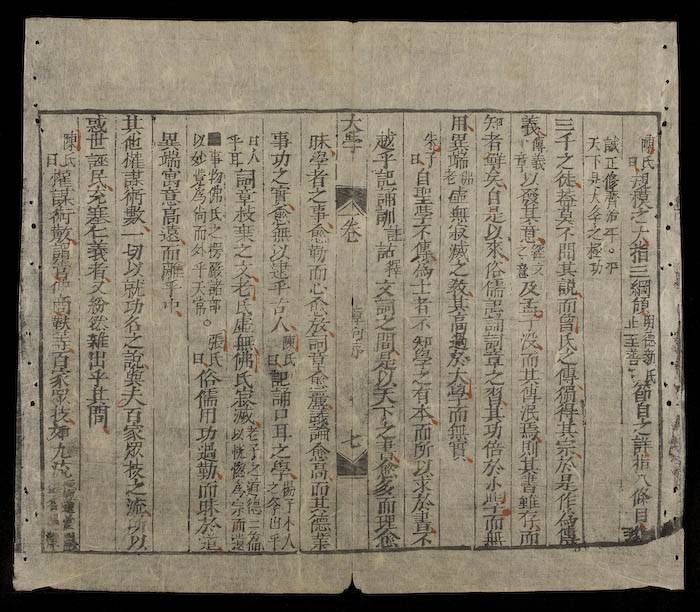 陳氏曰規模之大指三綱領明德新民止至善節目之詳指八條目
誠正修齊治平。平天下是大學之極功
三千之徒蓋莫不聞其說而曾氏之傳獨得其宗於是作為傳
義傳義十章以發其意經文之意及孟子沒而其傳泯焉則其書雖存而
知者鮮矣自是以來俗儒記誦詞章之習其功倍於小學而無
用異端佛老虛無寂滅之教其高過於大學而無實
朱子曰自聖學不傳為士者不知學之有本而所以求於書不
越乎記誦訓詁註釋文詞之間是以天下之書愈多而理愈
大學 卷 章句序 七
昧學者之事愈勤而心愈放詞章愈麗議論愈高而其德業
事功之實愈無以逮乎古人 陳氏曰記誦口耳之學揚子小人之學出乎
口入乎耳詞章枝葉之文老氏虛無佛氏寂滅老子之道德二篇以恍惚為宗而遺
事物佛氏之楞嚴諸部以妙覺為尚而外乎天常。張氏曰俗儒用功過勤而昧於道
異端寓意高遠而離乎中
其他權謀術數一切以就功名之說與夫百家眾技之流所以
惑世誣民充塞仁義者又紛然雜出乎其間
陳氏曰權謀術數謂管商孫吳等百家眾技如九流